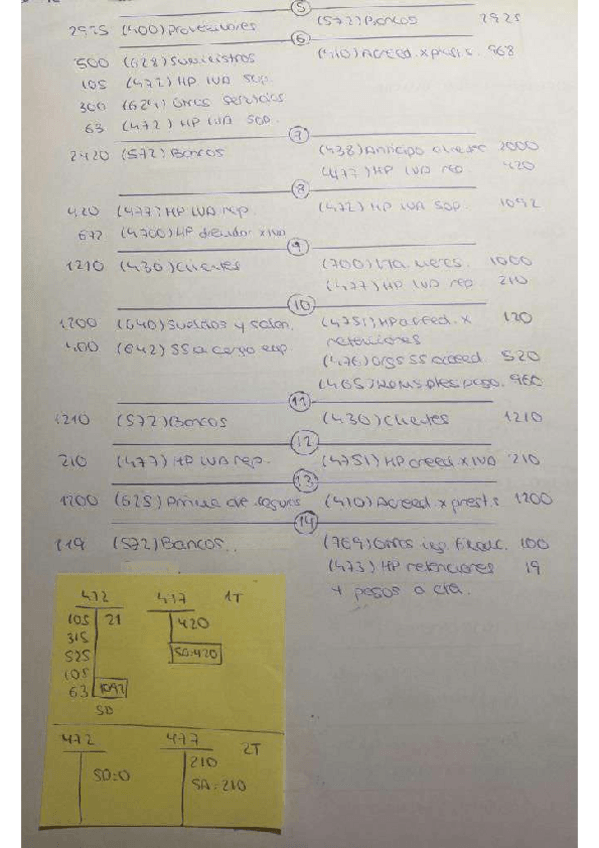 5
2925 (400) Proveedores (572) Bancos 2925
6
500 (628) Suministros (410) Acreed. x prest. s. 968
105 (472) HP IVA sop.
300 (629) Otros servicios
63 (472) HP IVA sop.
7
2420 (572) Bancos (438) Anticipo clientes 2000
(477) HP IVA rep 420
8
420 (477) HP IVA rep. (472) HP IVA sop. 1092
672 (4700) HP deudor x IVA
9
1210 (430) Clientes (700) Vta merc. 1000
(477) HP IVA rep. 210
10
1200 (640) Sueldos y salar. (4751) HP acreed. x 120
400 (642) SS a cargo emp retenciones
(476) Orgs SS acreed. 520
(465) Rems ptes pago. 960
11
1210 (572) Bancos (430) Clientes 1210
12
210 (477) HP IVA rep. (4751) HP acreed x IVA 210
13
1200 (625) Prima de seguros (410) Acreed. x prest. s 1200
14
119 (572) Bancos. (769) Otros ing. financ. 100
(473) HP retenciones 19
+ pagos a cta.
472 477 1T
105 21 420
315 SA:420
525
105
63 1092
SD
472 477 2T
210
SD:0 SA:210